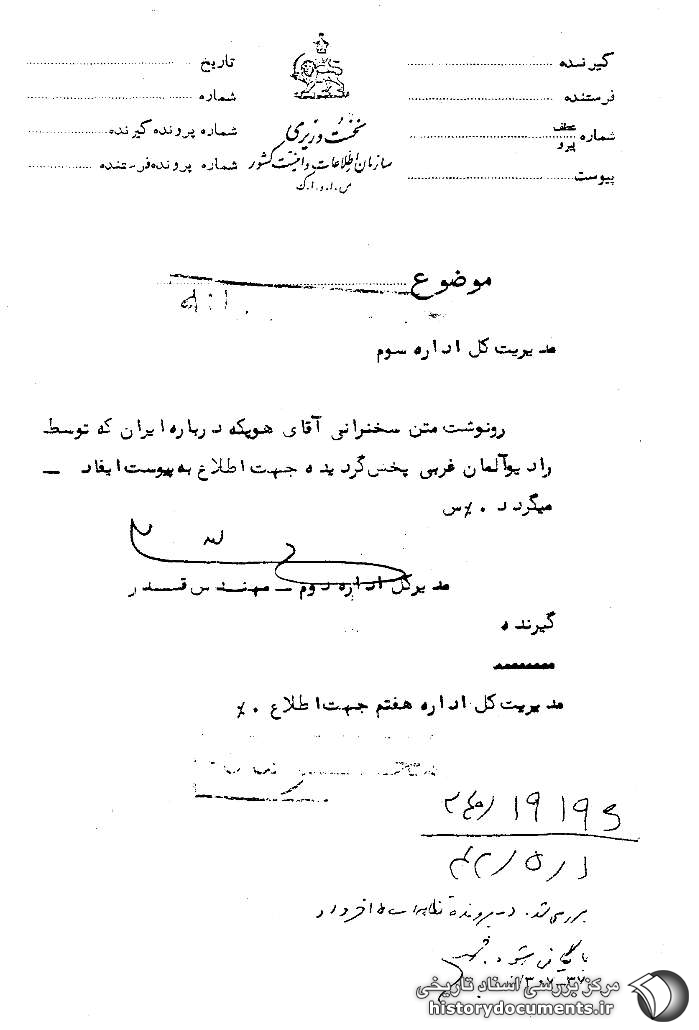 گیرنده
فرستنده
شماره عطف پیرو
پیوست
نخست وزیری
سازمان اطلاعات و امنیت کشور
س.ا.و.ا.ک
تاریخ
شماره
شماره پرونده گیرنده
شماره پرونده فرستنده
موضوع
مدیریت کل اداره سوم
رونوشت متن سخنرانی آقای هویکه درباره ایران که توسط
رادیو آلمان غربی پخش گردیده جهت اطلاع به پیوست ایفاد –
میگردد . ٪س
مدیرکل اداره دوم – مهندس قسدر
گیرنده
مدیریت کل اداره هفتم جهت اطلاع . ٪
بررسی شد. در پرونده
مرکز بررسی اسناد تاریخی
historydocuments.ir